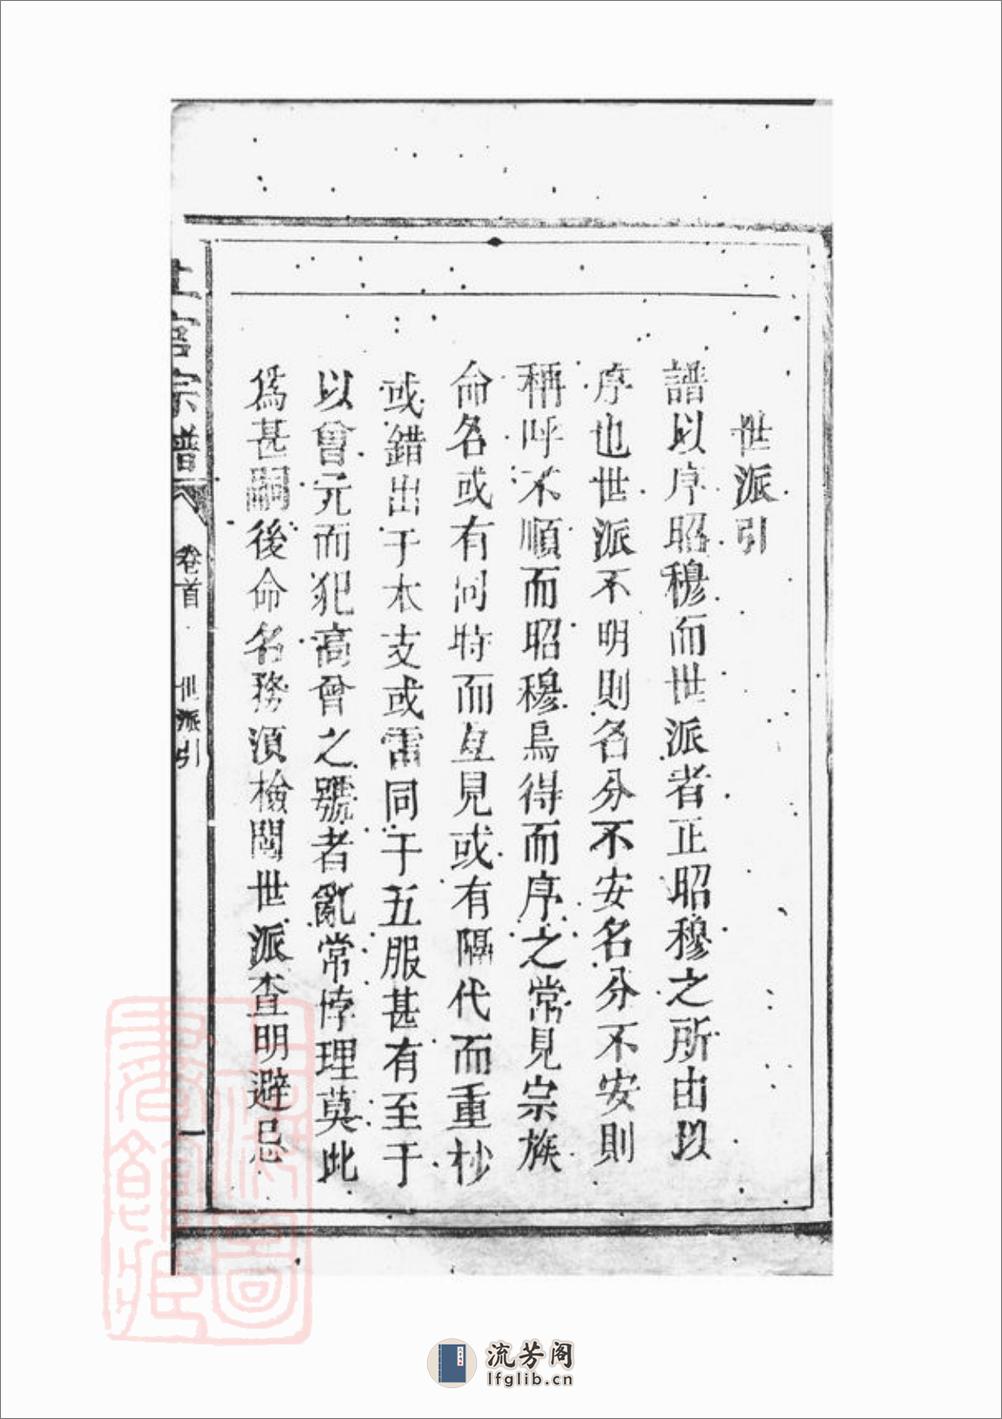 世派引
譜以序昭穆而世派者正昭穆之所由以
序也世派不明則名分不安名分不安則
稱呼不順而昭穆烏得而序之常見宗族
命名或有同時而互見或有隔代而重杪
或錯出于本支或雷同于五服甚有至于
以曾元而犯高曾之號者亂常悖理莫此
爲甚嗣後命名務須檢閱世派查明避忌
上官宗譜
卷首
世派引
一
流芳阁
lfglib.cn